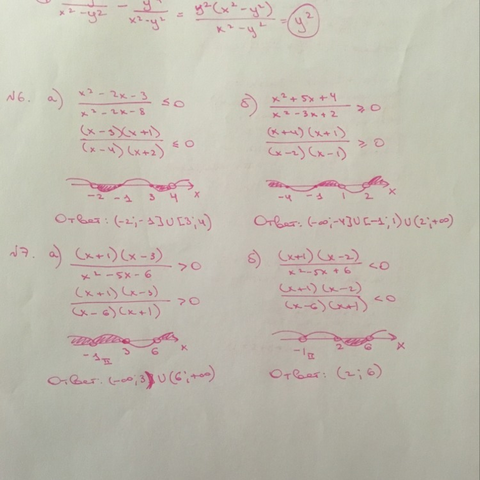 y² / (x² - y²) = y²(x² - y²) / (x² - y²) = y²
№6. а) (x² - 2x - 3) / (x² - 2x - 8) ≤ 0
(x-3)(x+1) / (x-4)(x+2) ≤ 0
-2 -1 3 4 x
Ответ: (-2; -1] U [3; 4)
б) (x² + 5x + 4) / (x² - 3x + 2) ≥ 0
(x+4)(x+1) / (x-2)(x-1) ≥ 0
-4 -1 1 2 x
Ответ: (-∞; -4] U [-1; 1) U (2; +∞)
№7. а) (x+1)(x-3) / (x² - 5x - 6) > 0
(x+1)(x-3) / (x-6)(x+1) > 0
-1 II 3 6 x
Ответ: (-∞; 3) U (6; +∞)
б) (x+1)(x-2) / (x² - 5x + 6) < 0
(x+1)(x-2) / (x-6)(x+1) < 0
-1 II 2 6 x
Ответ: (2; 6)